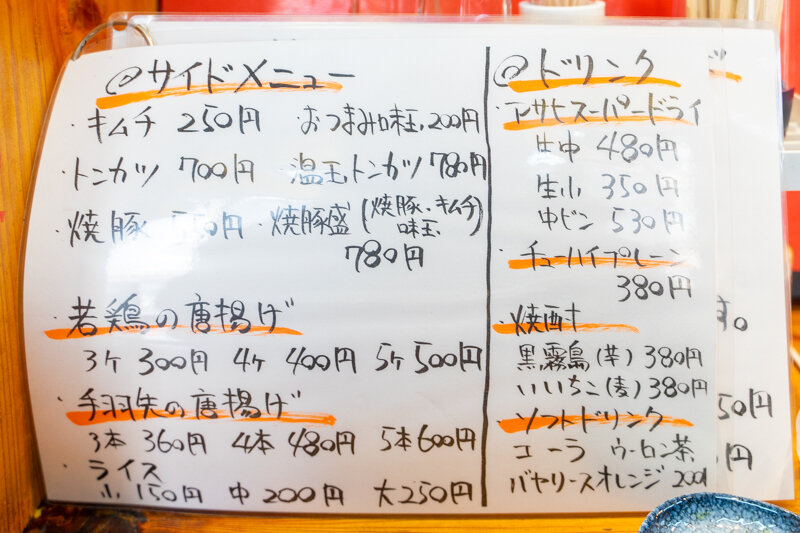 @サイドメニュー
・キムチ 250円 ・おつまみ味玉 200円
・トンカツ 700円 ・温玉トンカツ 780円
・焼豚 円 ・焼豚盛(焼豚・キムチ
味玉)
780円
・若鶏の唐揚げ
3ヶ 300円 4ヶ 400円 5ヶ 500円
・手羽先の唐揚げ
3本 360円 4本 480円 5本 600円
・ライス
小 150円 中 200円 大 250円
@ドリンク
・アサヒスーパードライ
生中 480円
生小 350円
中ビン 530円
・チューハイプレーン
380円
・焼酎
黒霧島(芋) 380円
いいちこ(麦) 380円
・ソフトドリンク
コーラ ウーロン茶
バヤリースオレンジ 200
す。
50円
円